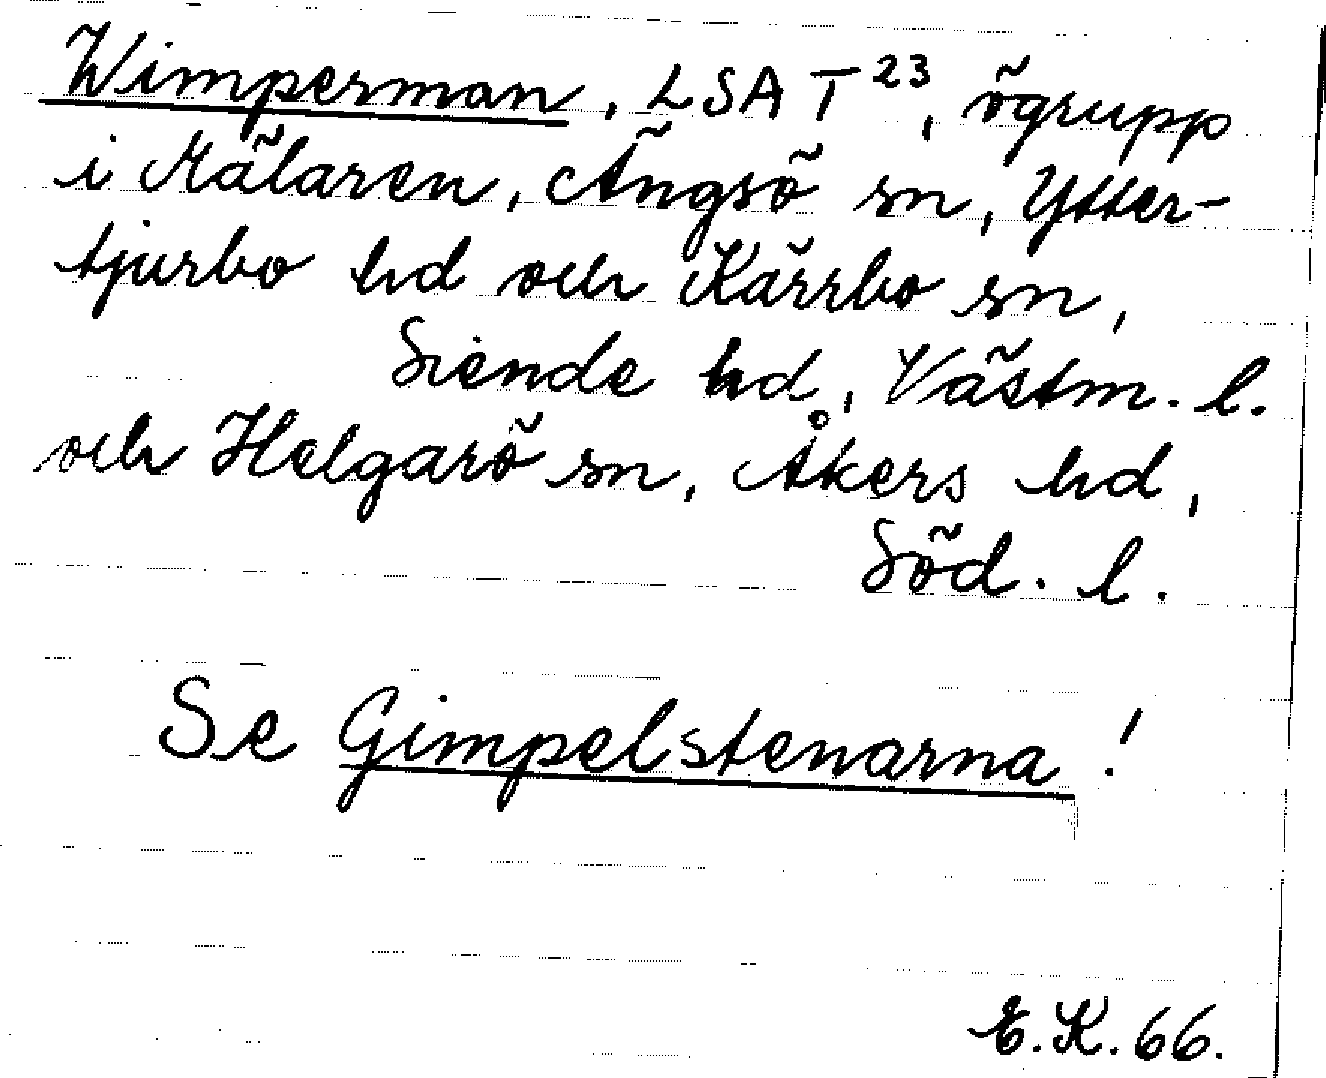 Wimperman, LSA T 23, ögrupp
i Mälaren, Ängsö sn, Ytter-
tjurbo hd och Kärrbo sn,
Siende hd, Västm. l.
och Helgarö sn, Åkers hd,
Söd. l.
Se Gimpelstenarna!
E.K. 66.